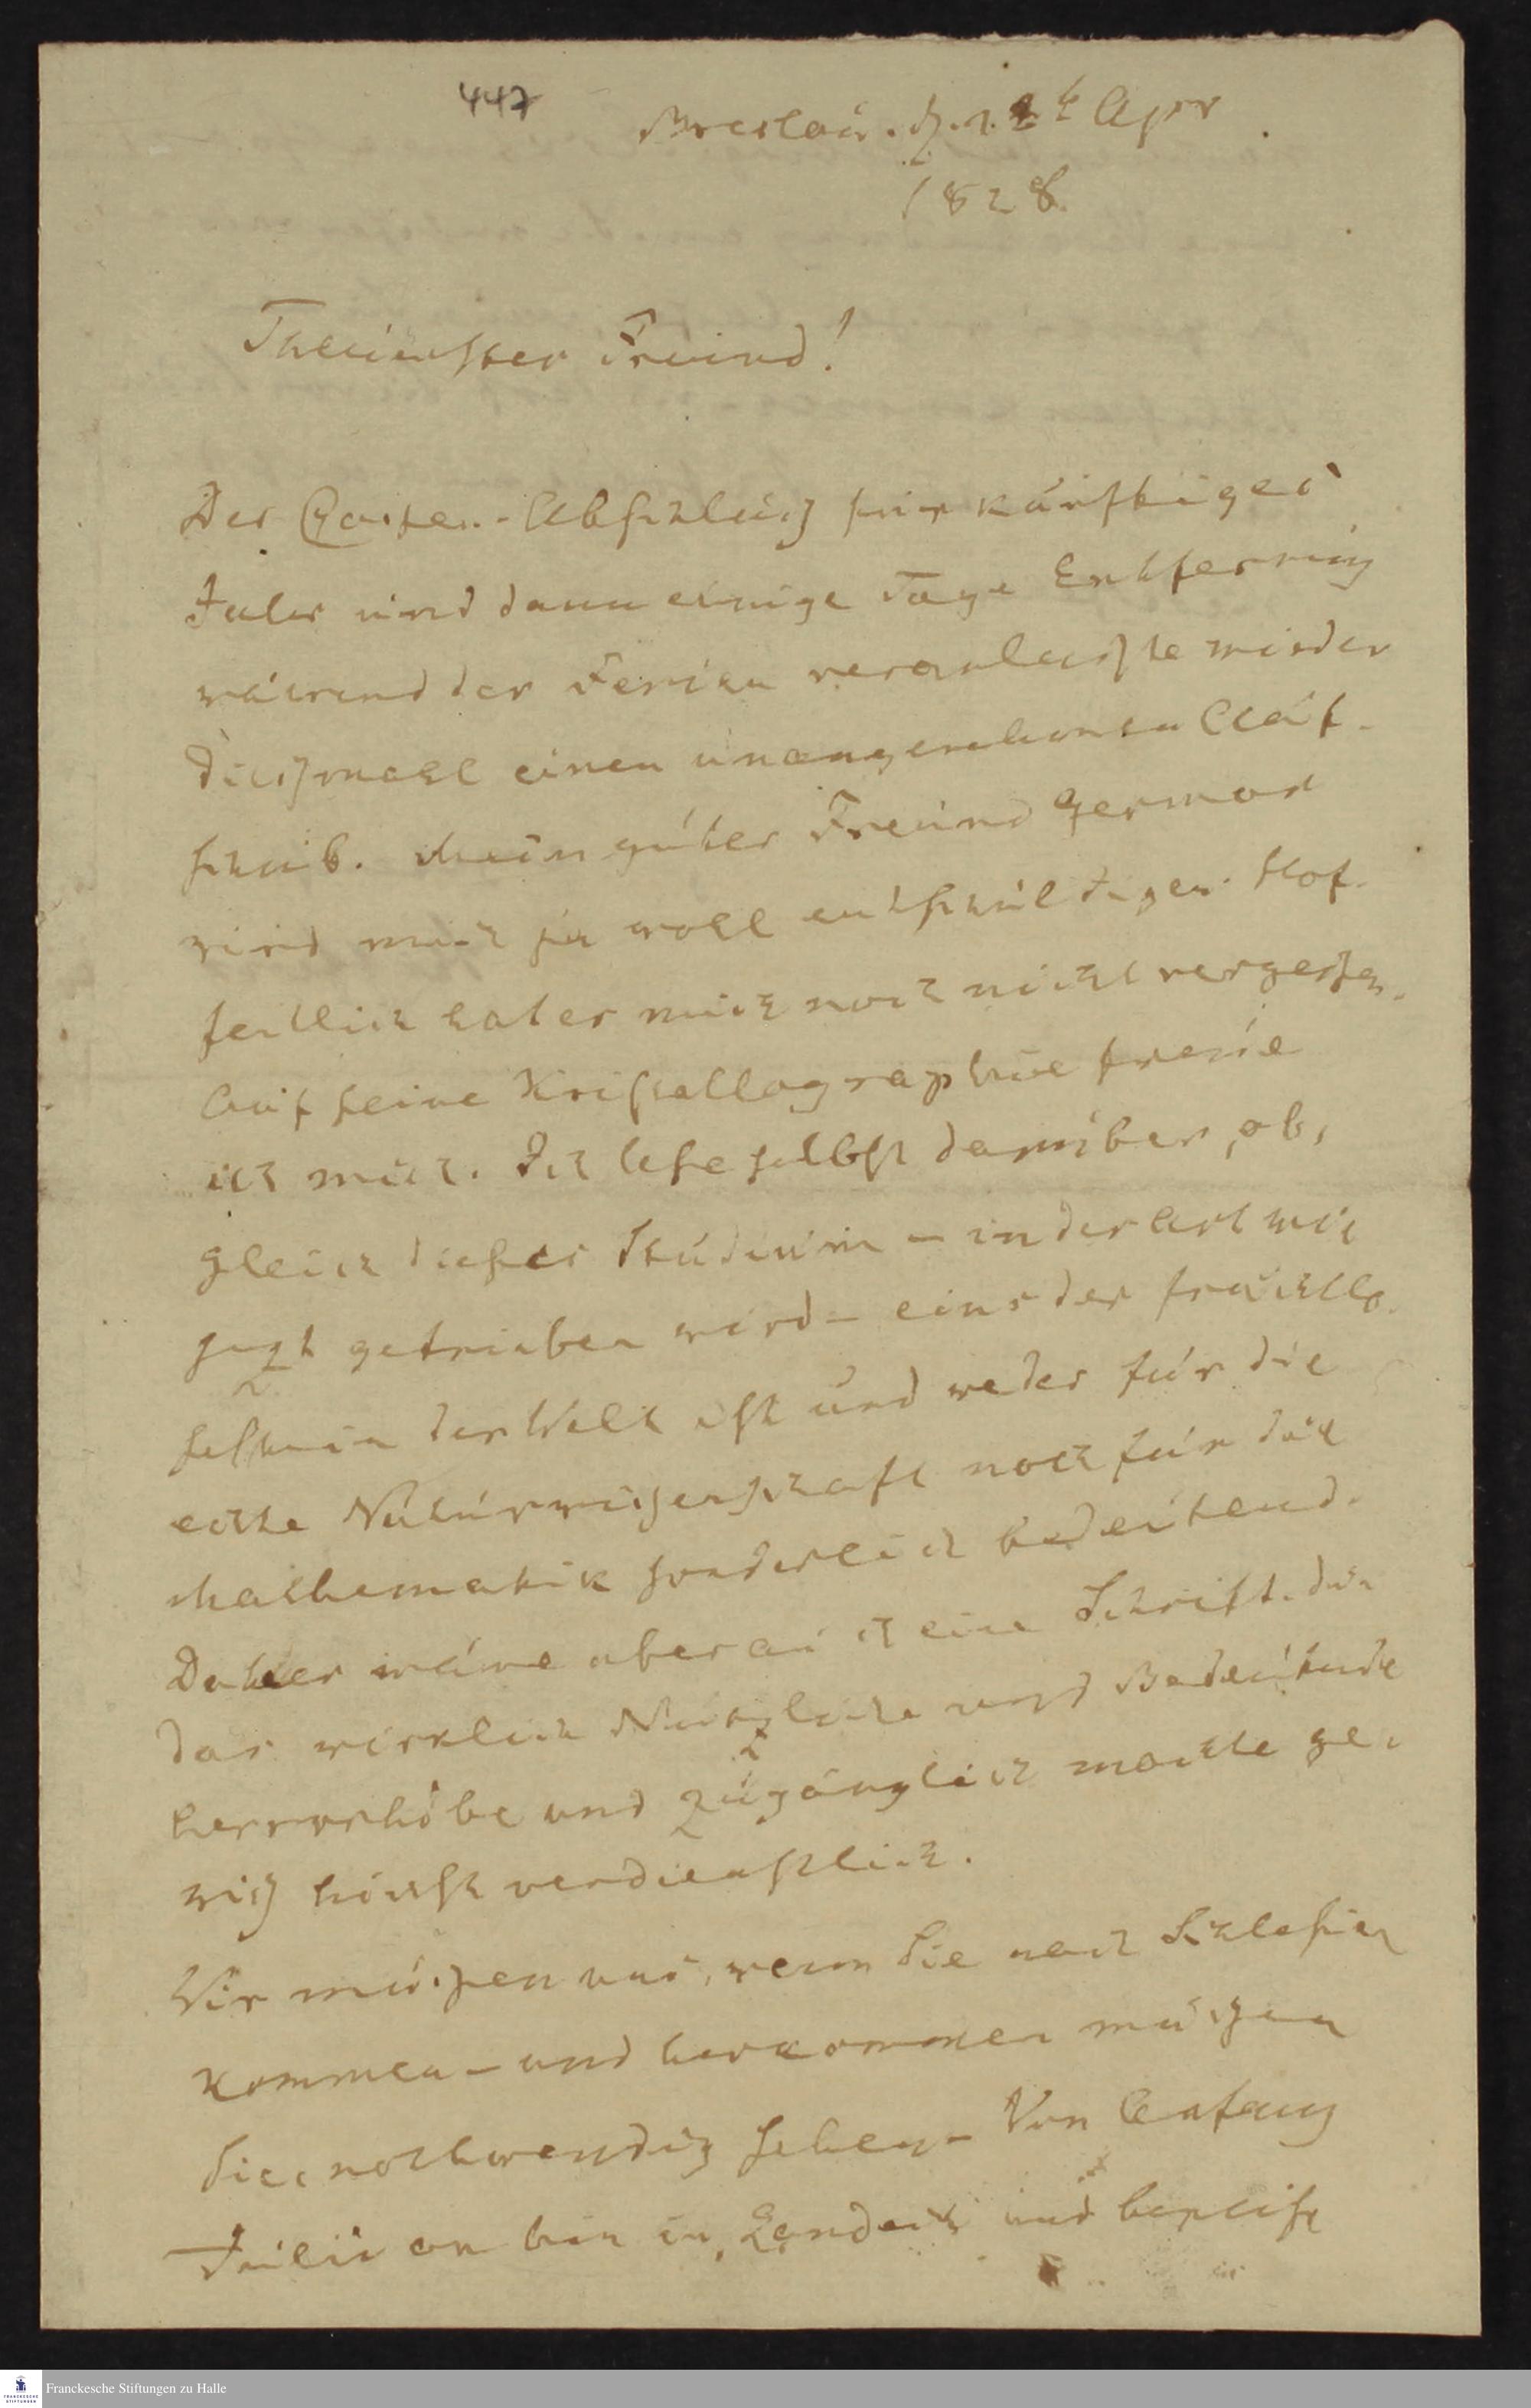 447
Breslau. d. 12t Apr
1828.
Theuerster Freund!
Der Cassen-Abschluß für künftiges
Jahr und dann einige Tage Entfernung
während der Ferien veranlaßte wieder
dießmahl einen unangenehmen Auf-
schub. Mein guter Freund Germar
wird mich ja wohl entschuldigen. Hof-
fentlich hat er mich noch nicht vergessen.
Auf seine Kristallographie freue
ich mich. Ich lese selbst darüber, ob,
gleich dieses Studium – in der Art wie
jezt getrieben wird – eins der fruchtlo-
sesten in der Welt ist und weder für die
echte Naturwissenschaft noch für die
Mathematik sonderlich bedeutend.
Daher wäre aber auch eine Schrift, die
das wirklich Nützliche und Bedeutende
hervorhöbe und zugänglich machte ge-
wiß höchst verdienstlich.
Wir müssen uns, wenn Sie nach Schlesien
kommen – und herkommen müssen
Sie nothwendig sehen – Von Anfang
Julii an bin in Landeck und bereise
Franckesche Stiftungen zu Halle